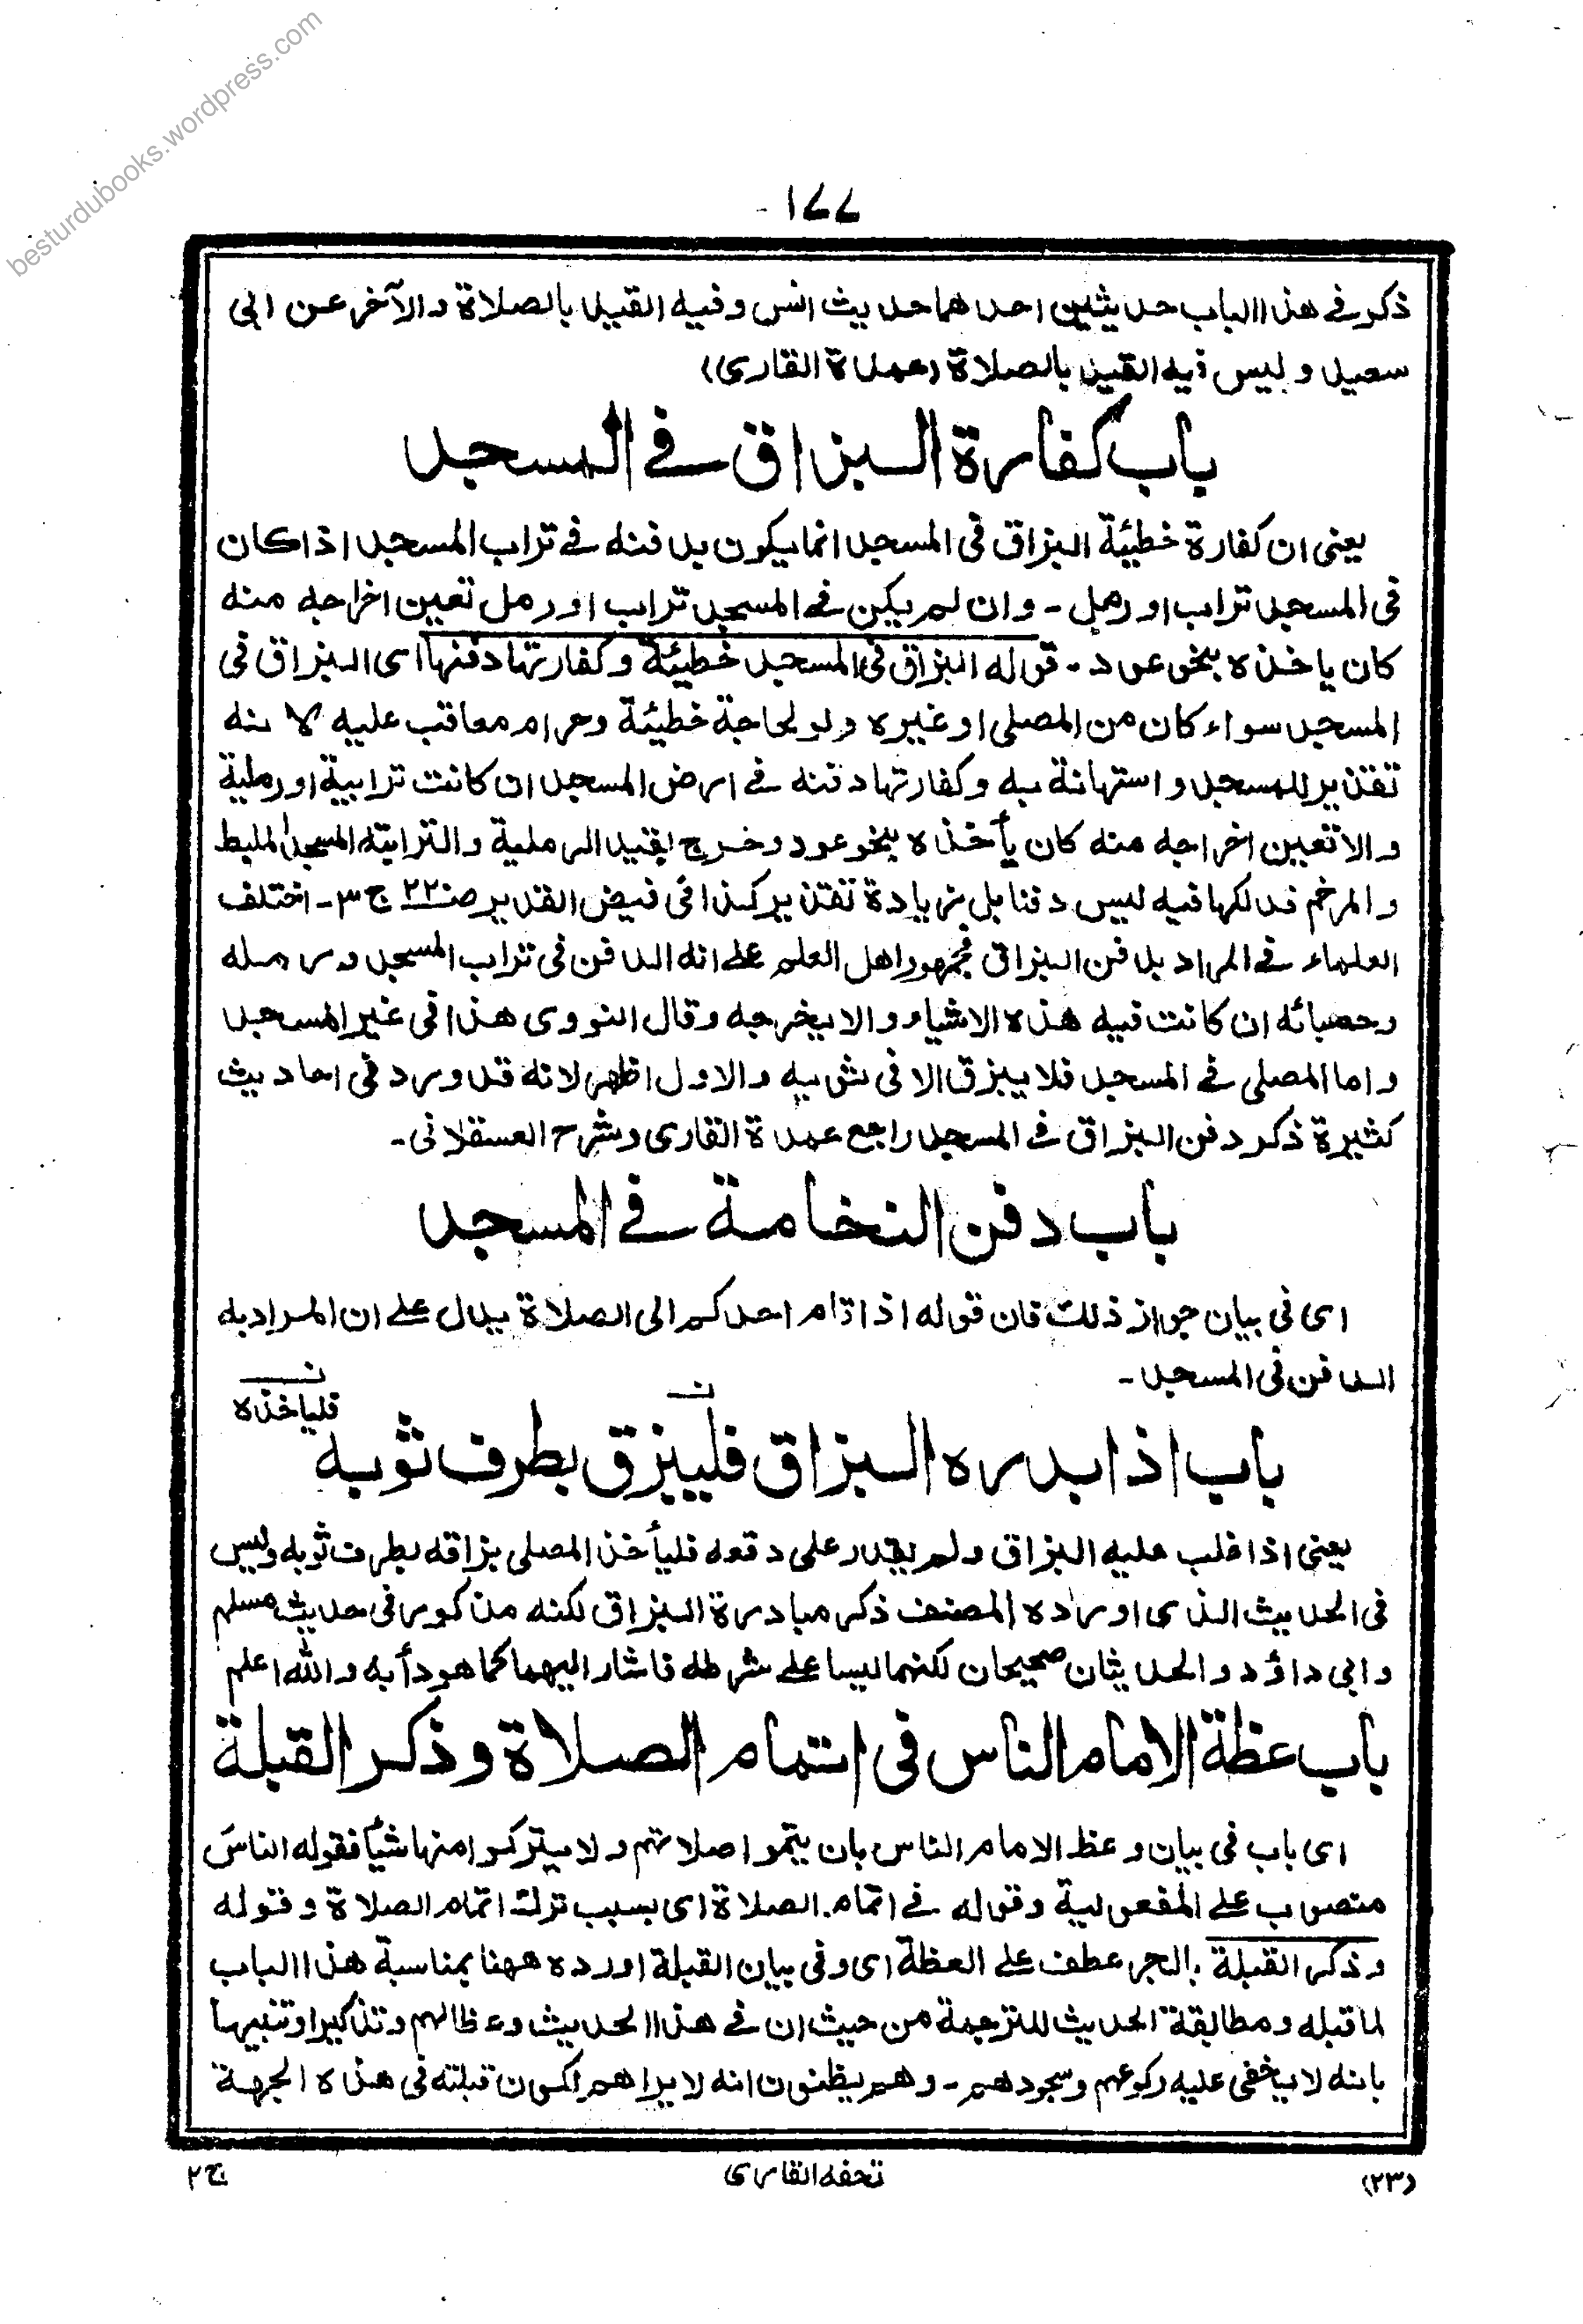 besturdubooks.wordpress.com
١٧٧
ذكر في هذا الباب حديثين احدهما حديث انس وفيه القيد بالصلاة والآخر عن ابي
سعيد و ليس فيه القيد بالصلاة (عمدة القارى)
باب كفارة البزاق في المسجد
يعنى ان كفارة خطيئة البزاق فى المسجد انما يكون بدفنه في تراب المسجد اذا كان
فى المسجد تراب او رمل - وان لم يكن في المسجد تراب او رمل تعين اخراجه منه
كان ياخذه بنحو عود - قوله البزاق فى المسجد خطيئة وكفارتها دفنها اى البزاق فى
المسجد سواء كان من المصلى او غيره ولو لحاجة خطيئة وحرام معاقب عليه لانه
تقذير للمسجد و استهانة به وكفارتها دفنه في ارض المسجد ان كانت ترابية او رملية
والا تعين اخراجه منه كان يأخذه بنحو عود وخرج بقيد الرملية والترابية المسجد المبلط
والمرخم فدلكها فيه ليس دفنا بل زيادة تقذير كذا فى فيض القدير صـ٢٢ ج ٣ - اختلف
العلماء في المراد بدفن البزاق فجمهور اهل العلم على انه الدفن فى تراب المسجد ورمله
وحصبائه ان كانت فيه هذه الاشياء والا يخرجه وقال النووى هذا فى غير المسجد
واما المصلى في المسجد فلا يبزق الا فى ثوبه والاول اظهر لانه قد ورد فى احاديث
كثيرة ذكر دفن البزاق في المسجد راجع عمدة القارى وشرح العسقلانى -
باب دفن النخامة في المسجد
اى فى بيان جواز ذلك فان قوله اذا قام احدكم الى الصلاة يدل على ان المراد به
الدفن فى المسجد -
ن فلياخذه
ن
باب اذا بدره البزاق فليبزق بطرف ثوبه
يعنى اذا غلب عليه البزاق ولم يقدر على دفعه فليأخذ المصلى بزاقه بطرف ثوبه وليس
فى الحديث الذى اورده المصنف ذكر مبادرة البزاق لكنه مذكور فى حديث مسلم
وابى داؤد والحديثان صحيحان لكنهما ليسا على شرطه فاشار اليهما كما هو دأبه والله اعلم
باب عظة الامام الناس فى اتمام الصلاة وذكر القبلة
اى باب فى بيان وعظ الامام الناس بان يتموا صلاتهم ولا يتركوا منها شيأ فقوله الناس
منصوب على المفعولية وقوله في اتمام الصلاة اى بسبب ترك اتمام الصلاة وقوله
وذكر القبلة بالجر عطف على العظة اى وفى بيان القبلة اورده ههنا بمناسبة هذا الباب
لما قبله ومطابقة الحديث للترجمة من حيث ان في هذا الحديث وعظا لهم وتذكيرا وتنبيها
بانه لا يخفى عليه ركوعهم وسجودهم - وهم يظنون انه لا يراهم لكون قبلته فى هذه الجهة
(٢٣)
تحفة القارى
ج ٢